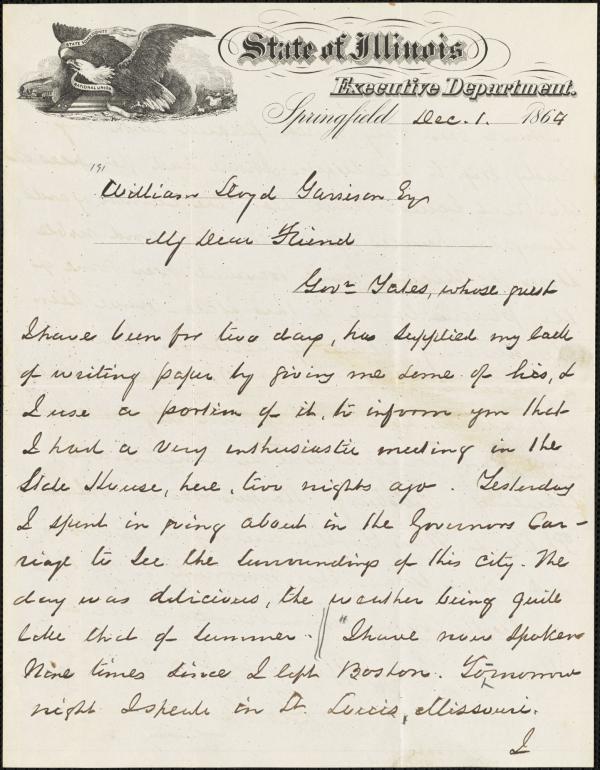 STATE SOVEREIGNTY
NATIONAL UNION
State of Illinois
Executive Department.
Springfield Dec. 1. 1864
191
William Lloyd Garrison Esq
My Dear Friend
Govr Yates, whose guest
I have been for two days, has supplied my lack
of writing paper by giving me some of his, &
I use a portion of it, to inform you that
I had a very enthusiastic meeting in the
State House, here, two nights ago. Yesterday
I spent in going about in the Governors Car-
riage to see the surroundings of this city. The
day was delicious, the weather being quite
like that of summer. // "I have now spoken
Nine times since I left Boston. Tomorrow
night I speak in St. Louis, Missouri.
I